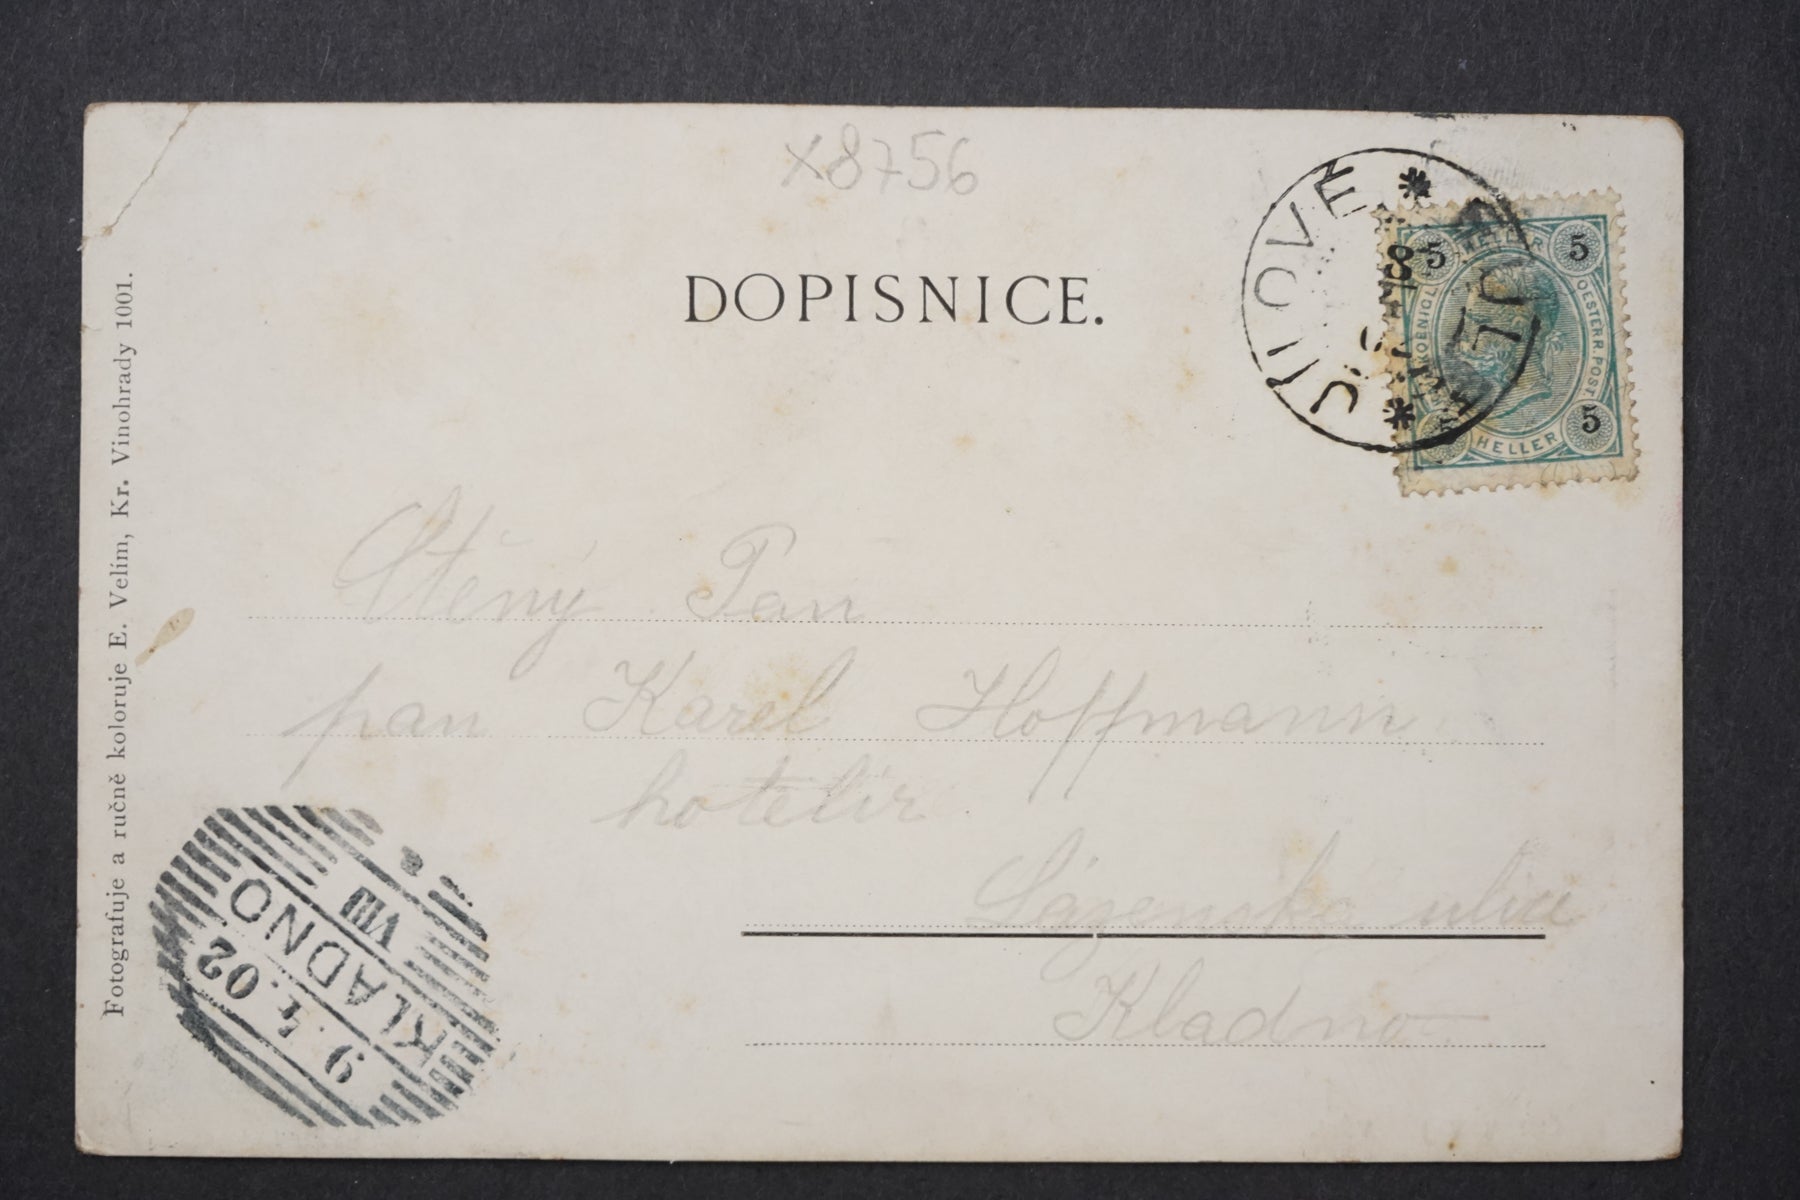 x8756
DOPISNICE.
JÍLOVÉ
5 HELLER 5
KOENIGL.
OESTERR. POST
HELLER 5
Ctěný Pan
pan Karel Hoffmann
hotelir
Lázenská ulice
Kladno
Fotografuje a ručně koloruje E. Velím, Kr. Vinohrady 1001.
KLADNO
VIII
9.4.02